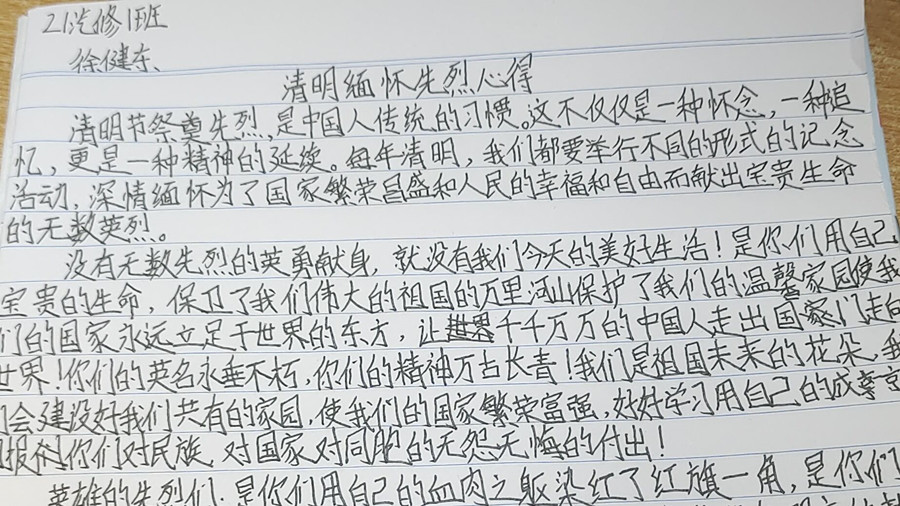 21汽修1班
徐健东、
清明缅怀先烈心得
清明节祭奠先烈,是中国人传统的习惯。这不仅仅是一种怀念,一种追
忆,更是一种精神的延续。每年清明,我们都要举行不同的形式的记念
活动,深情缅怀为了国家繁荣昌盛和人民的幸福和自由而献出宝贵生命
的无数英烈。
没有无数先烈的英勇献身,就没有我们今天的美好生活!是你们用自己
宝贵的生命,保卫了我们伟大的祖国的万里河山保护了我们的温馨家园使我
们的国家永远立足于世界的东方,让千千万万的中国人走出国家门走向
世界!你们的英名永垂不朽,你们的精神万古长青!我们是祖国未来的花朵,我
们会建设好我们共有的家园,使我们的国家繁荣富强,好好学习用自己的成
报衬你们对民族,对国家对同胞的无怨无悔的付出!
英雄的先烈们,是你们用自己的血肉之躯染红了红旗一角,是你们